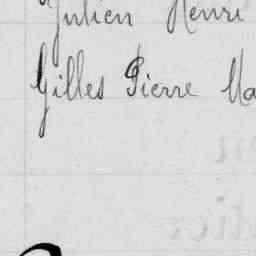 Julien Henri
Gilles Pierre Ma